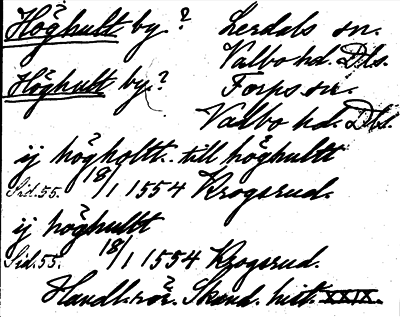 Höghult by? Lerdals sn.
Valbo hd. Dls.
Höghult by? Færps sn.
Valbo hd. Dls.
ij högholtt. till höghultt
Sid. 55. 18/1 1554 Krogsrud.
ij höghultt
Sid. 55. 18/1 1554 Krogsrud.
Handl. rör. Skand. hist. XXIX.